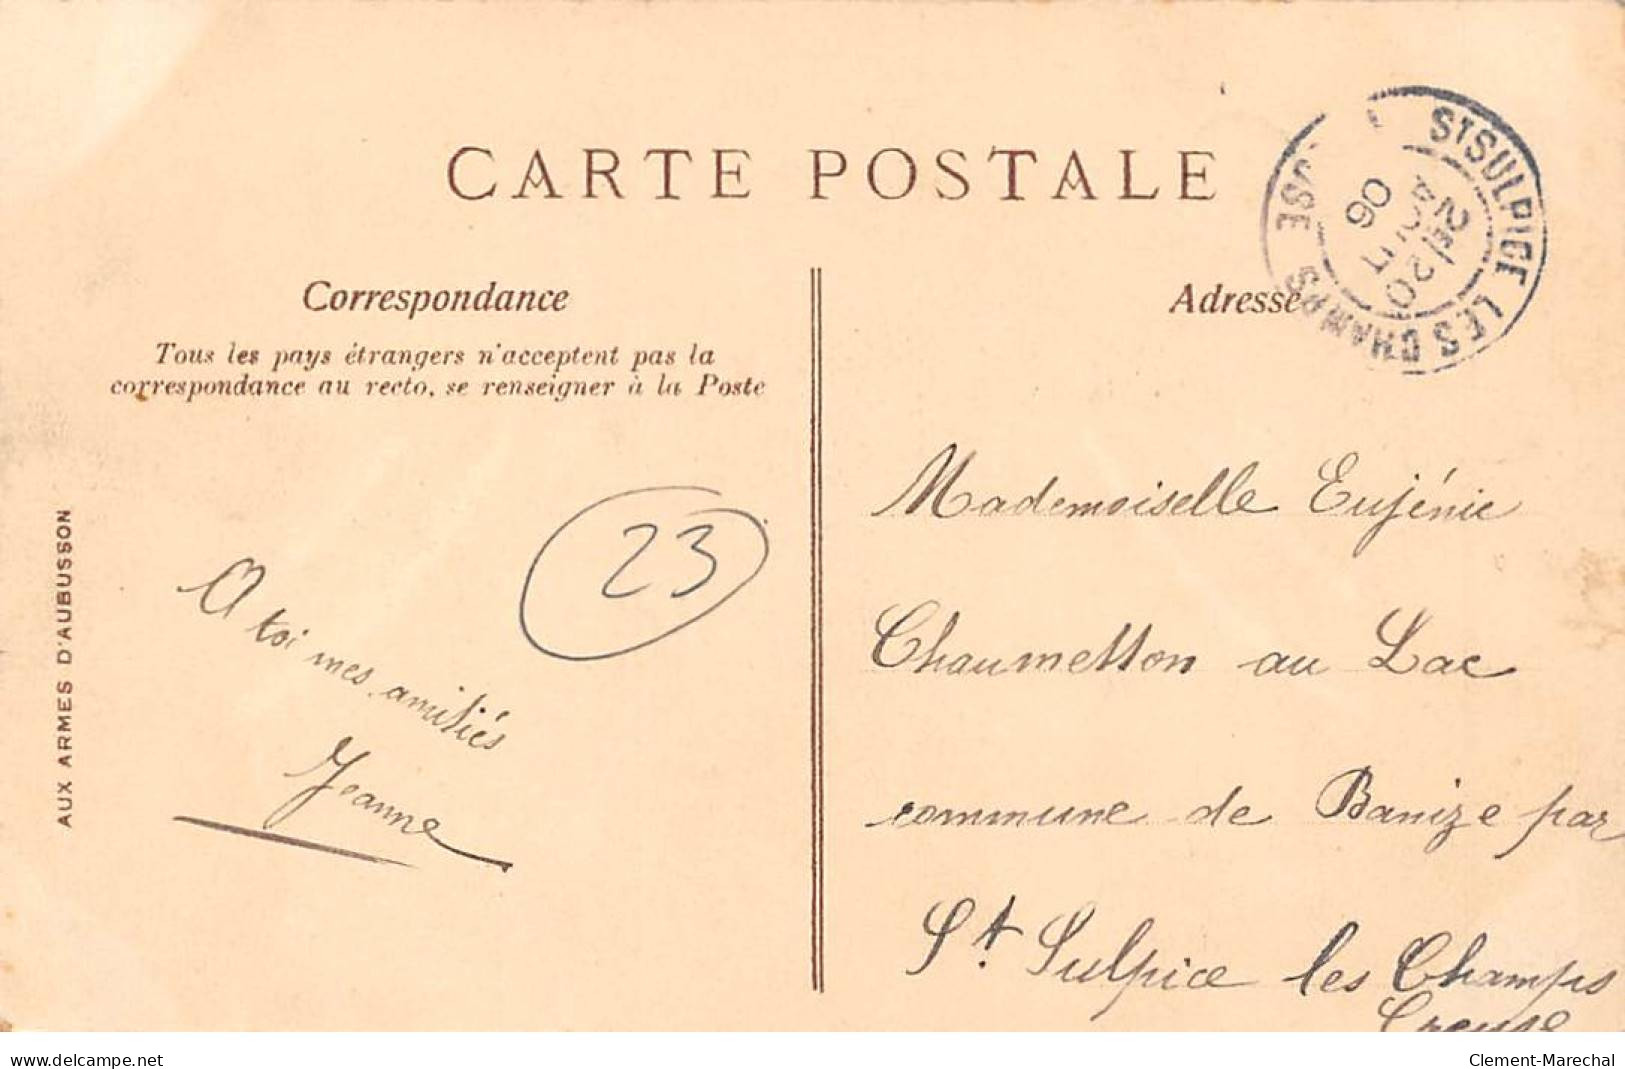 CARTE POSTALE
Correspondance
Tous les pays étrangers n'acceptent pas la
correspondance au recto, se renseigner à la Poste
AUX ARMES D'AUBUSSON
23
A toi mes amitiés
Jeanne
Adresse
ST SULPICE LES CHAMPS
2E/20
AOUT
06
Mademoiselle Eujénie
Chaumetton au Lac
commune de Banize par
St. Sulpice les Champs
Creuse
www.delcampe.net
Clement-Marechal